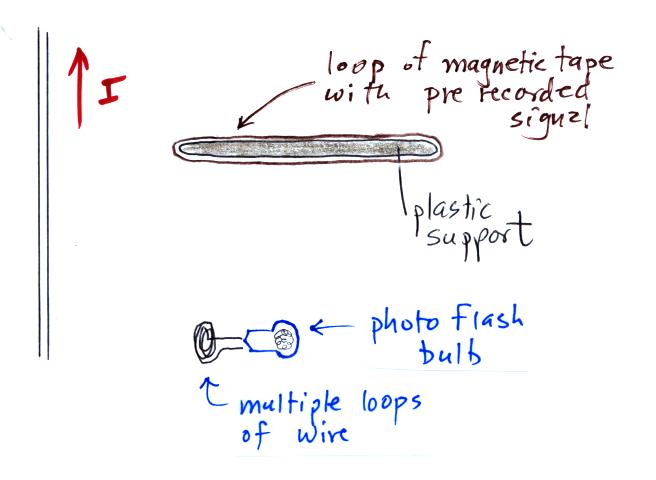 I
loop of magnetic tape
with pre recorded
signal
plastic
support
photo flash
bulb
multiple loops
of wire